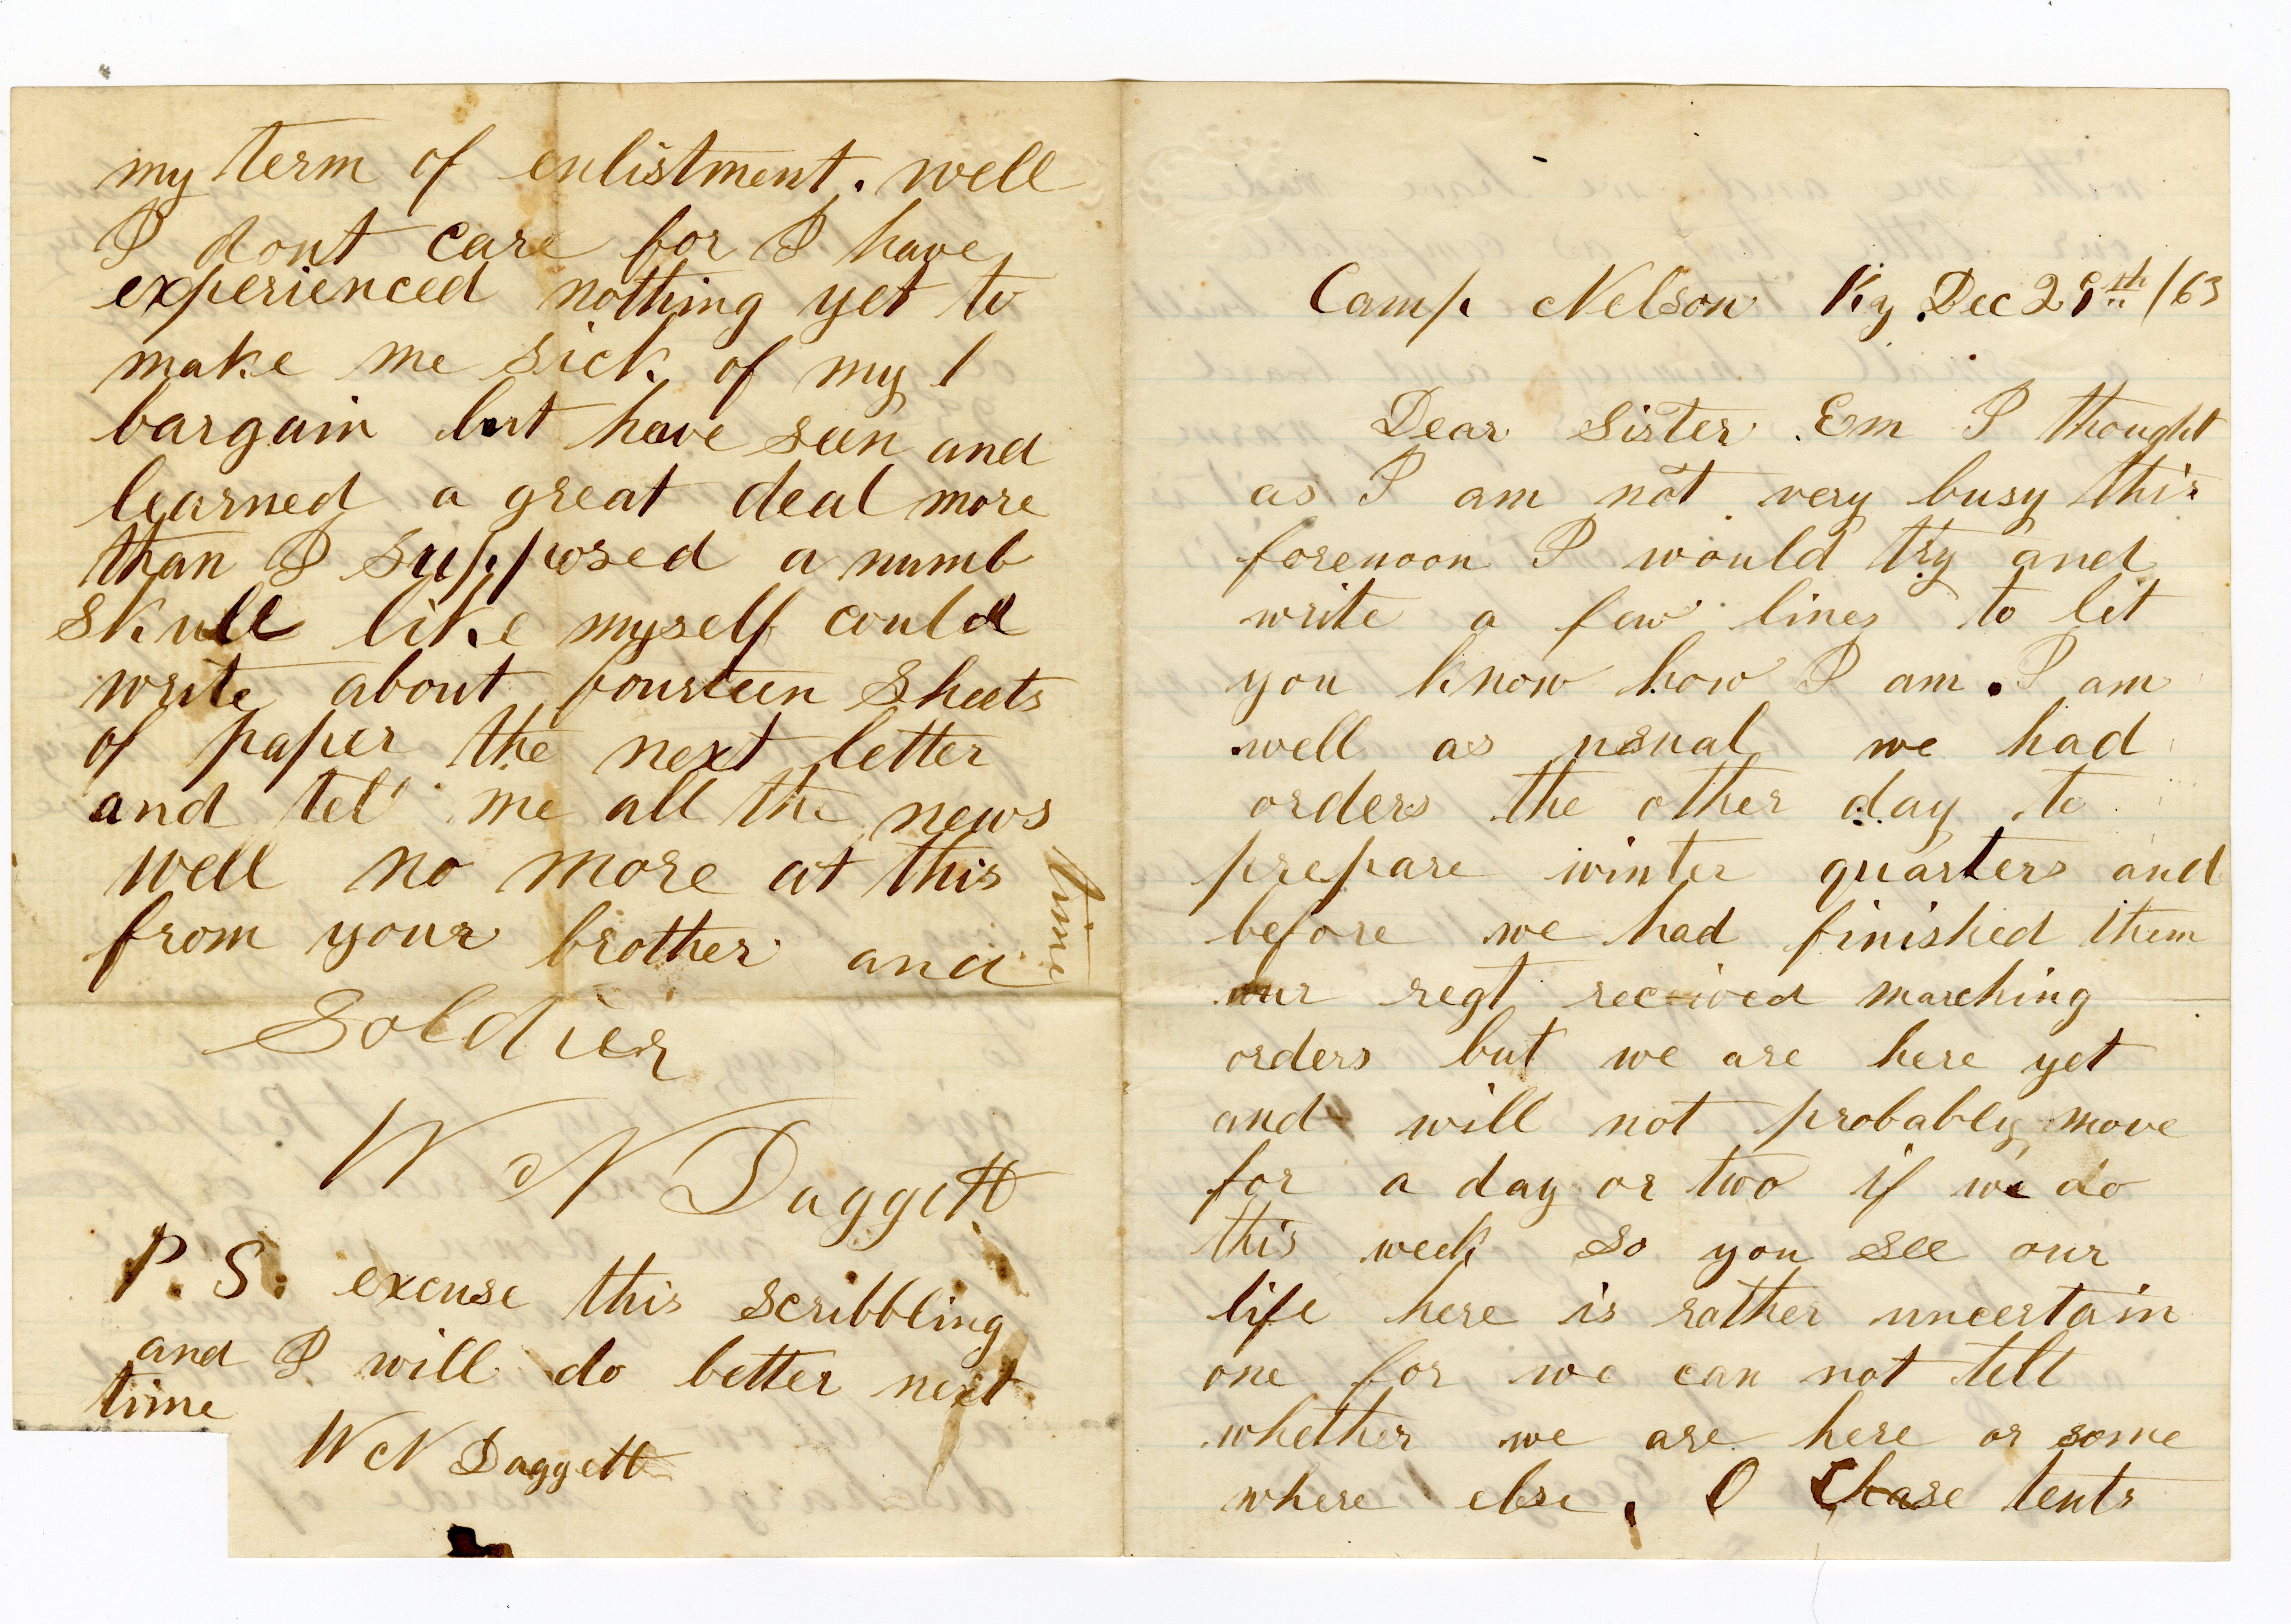 Camp Nelson Ky. Dec /63
Dear Sister Em I thought
as I am not very busy this
forenoon I would try and
write a few lines to let
you know how I am. I am
well as usual we had
orders the other day to
prepare winter quarters and
before we had finished them
our regt received marching
orders but we are here yet
and will not probably move
for a day or two if we do
this week so you see our
life here is rather uncertain
one for we can not tell
whether we are here or some
where else. O Chase tents
my term of enlistment. well
I dont care for I have
experienced nothing yet to
make me sick of my
bargain but have seen and
learned a great deal more
than I supposed a numb
skull like myself could
write about fourteen sheets
of paper the next letter
and tel me all the news
well no more at this time
from your brother and
Soldier
W N Daggett
P. S. excuse this scribbling
and I will do better next
time
W N Daggett